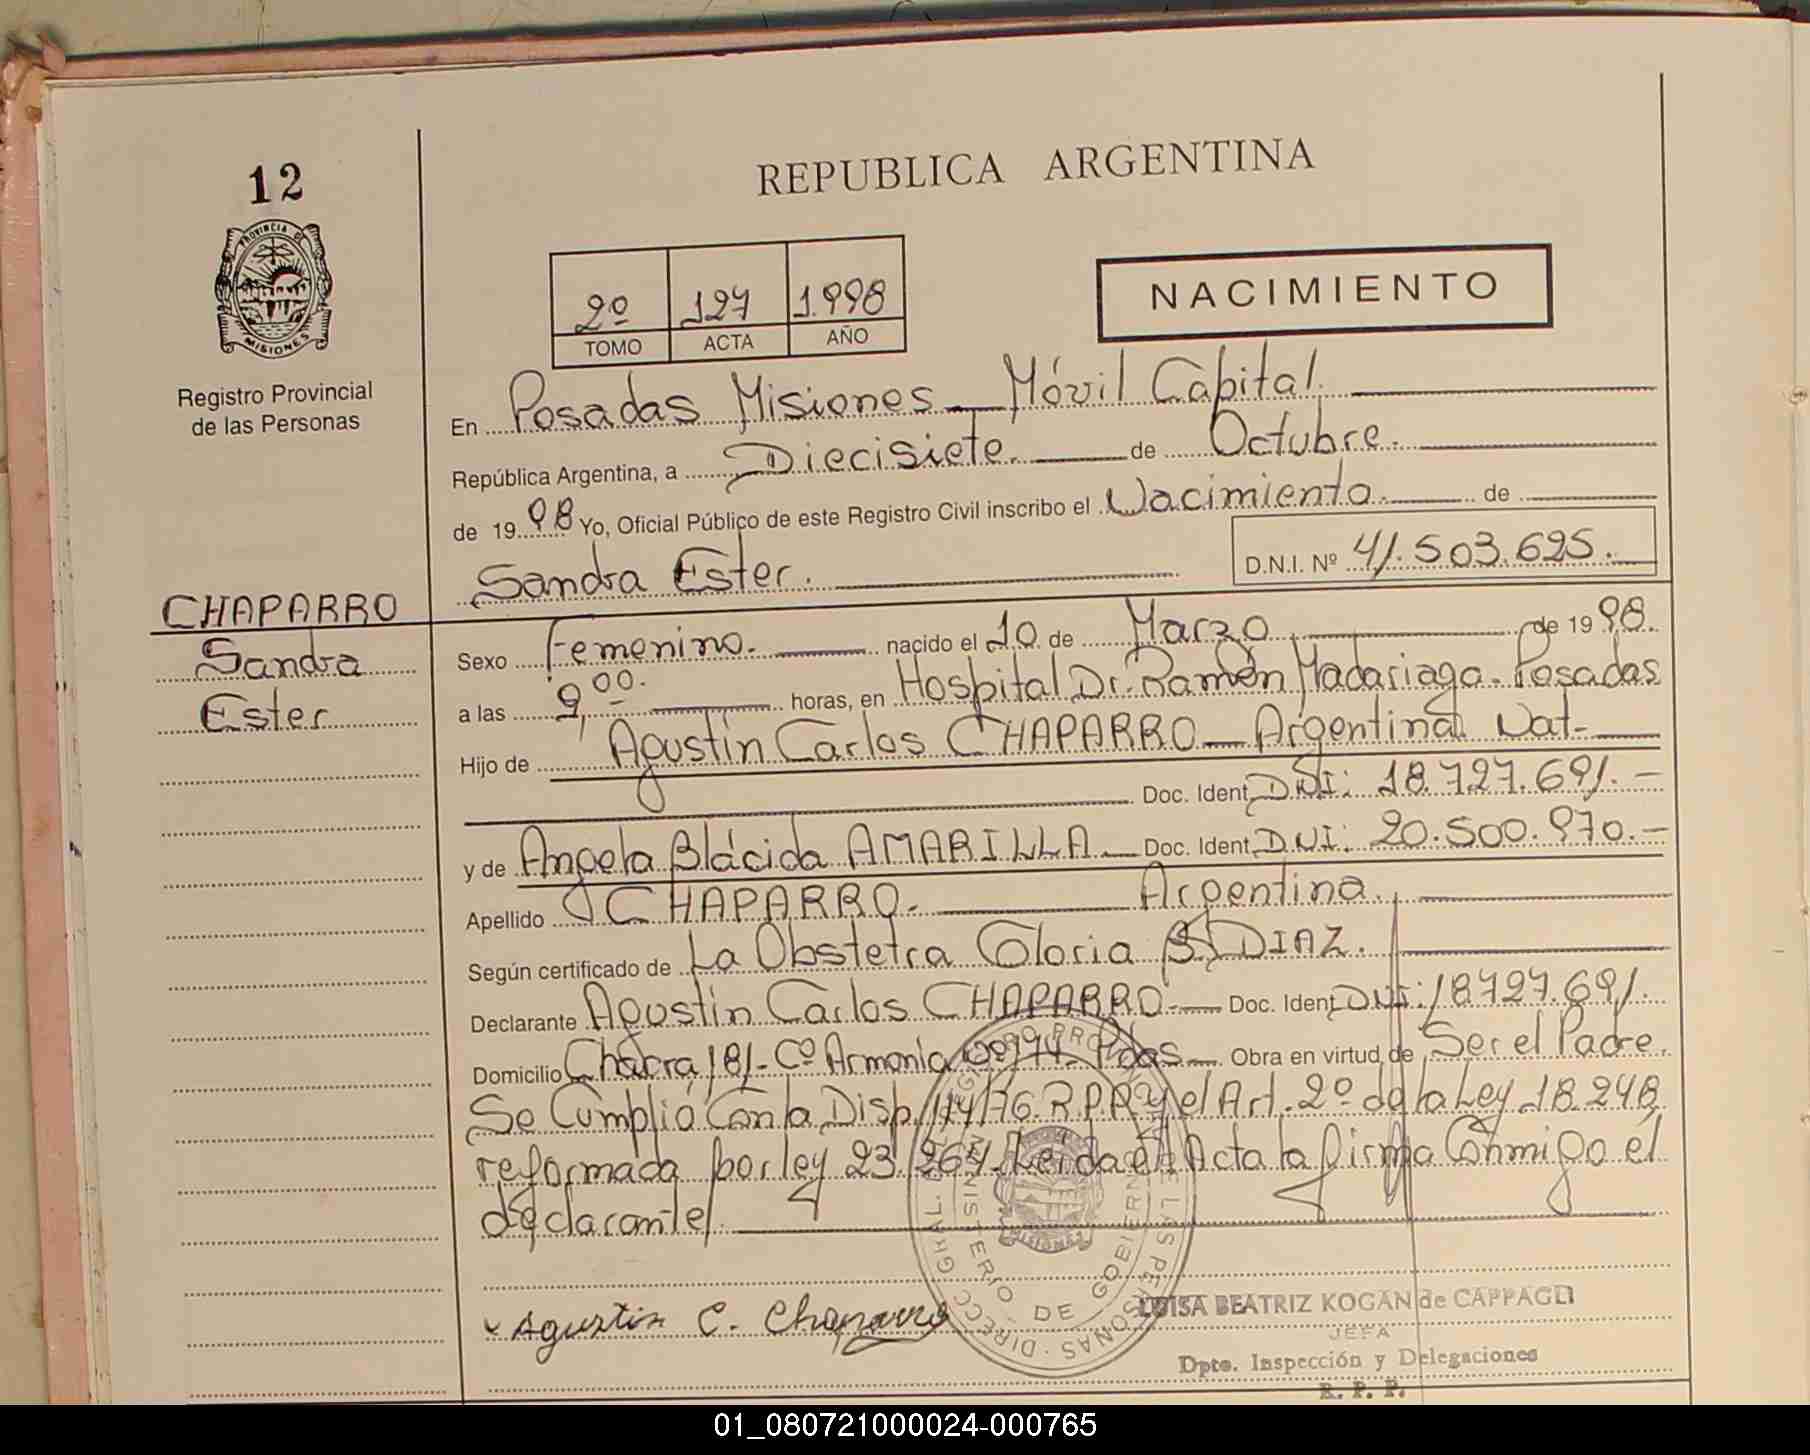 12
REPUBLICA ARGENTINA
PROVINCIA DE
MISIONES
Registro Provincial
de las Personas
2º 127 1.998
TOMO ACTA AÑO
NACIMIENTO
En Posadas Misiones Móvil Capital.
República Argentina, a Diecisiete. de Octubre.
de 19 98 Yo, Oficial Público de este Registro Civil inscribo el Nacimiento. de
Sandra Ester.
D.N.I. Nº 41.503.625.
CHAPARRO
Sandra
Ester
Sexo Femenino. nacido el 10 de Marzo de 19 98.
a las 9,00. horas, en Hospital Dr. Ramón Madariaga. Posadas
Hijo de Agustín Carlos CHAPARRO Argentina Nat.
Doc. Ident DNI: 18.727.691.
y de Angela Blácida AMARILLA Doc. Ident DNI: 20.500.970.
Apellido CHAPARRO. Argentina.
Según certificado de La Obstetra Gloria B. DIAZ.
Declarante Agustín Carlos CHAPARRO Doc. Ident DNI: 18727.691.
Domicilio Chacra 181 - Cº Armonia Nº Pdas Obra en virtud de Ser el Padre.
Se Cumplió Con la Disp. 114/76. R.P.P. y el Art. 2º de la Ley 18.248
reformada por ley 23.264. Leida el Acta la firma Conmigo el
declarante
Agustin C. Chaparro
DIRECC. GRAL. REGISTRO PROV. DE LAS PERSONAS
MINISTERIO DE GOBIERNO
MISIONES
LUISA BEATRIZ KOGAN de CAPPAGLI
JEFA
Dpto. Inspección y Delegaciones
R. P. P.
01_080721000024-000765